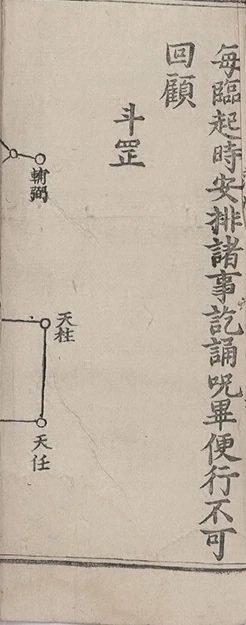 每臨起時安排諸事訖誦呪畢便行不可
回顧
斗罡
輔弼
天柱
天任